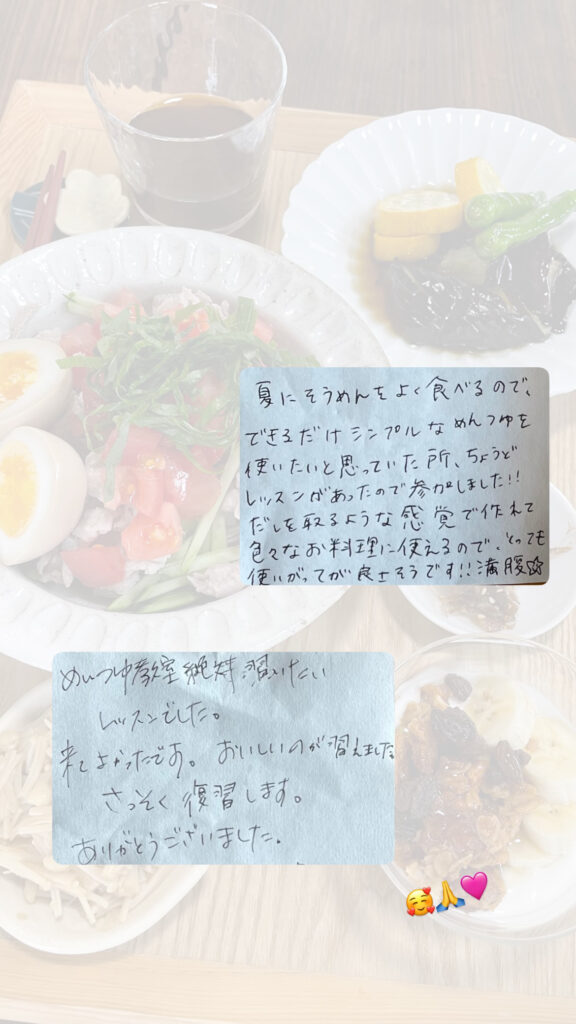 夏にそうめんをよく食べるので、
できるだけシンプルなめんつゆを
使いたいと思っていた所、ちょうど
レッスンがあったので参加しました!!
だしを取るような感覚で作れて
色々なお料理に使えるので、とっても
使いがってが良さそうです!!満腹☆
めんつゆ教室絶対習いたい
レッスンでした。
来てよかったです。おいしいのが習えました
さっそく復習します。
ありがとうございました。
🥰🙏💗